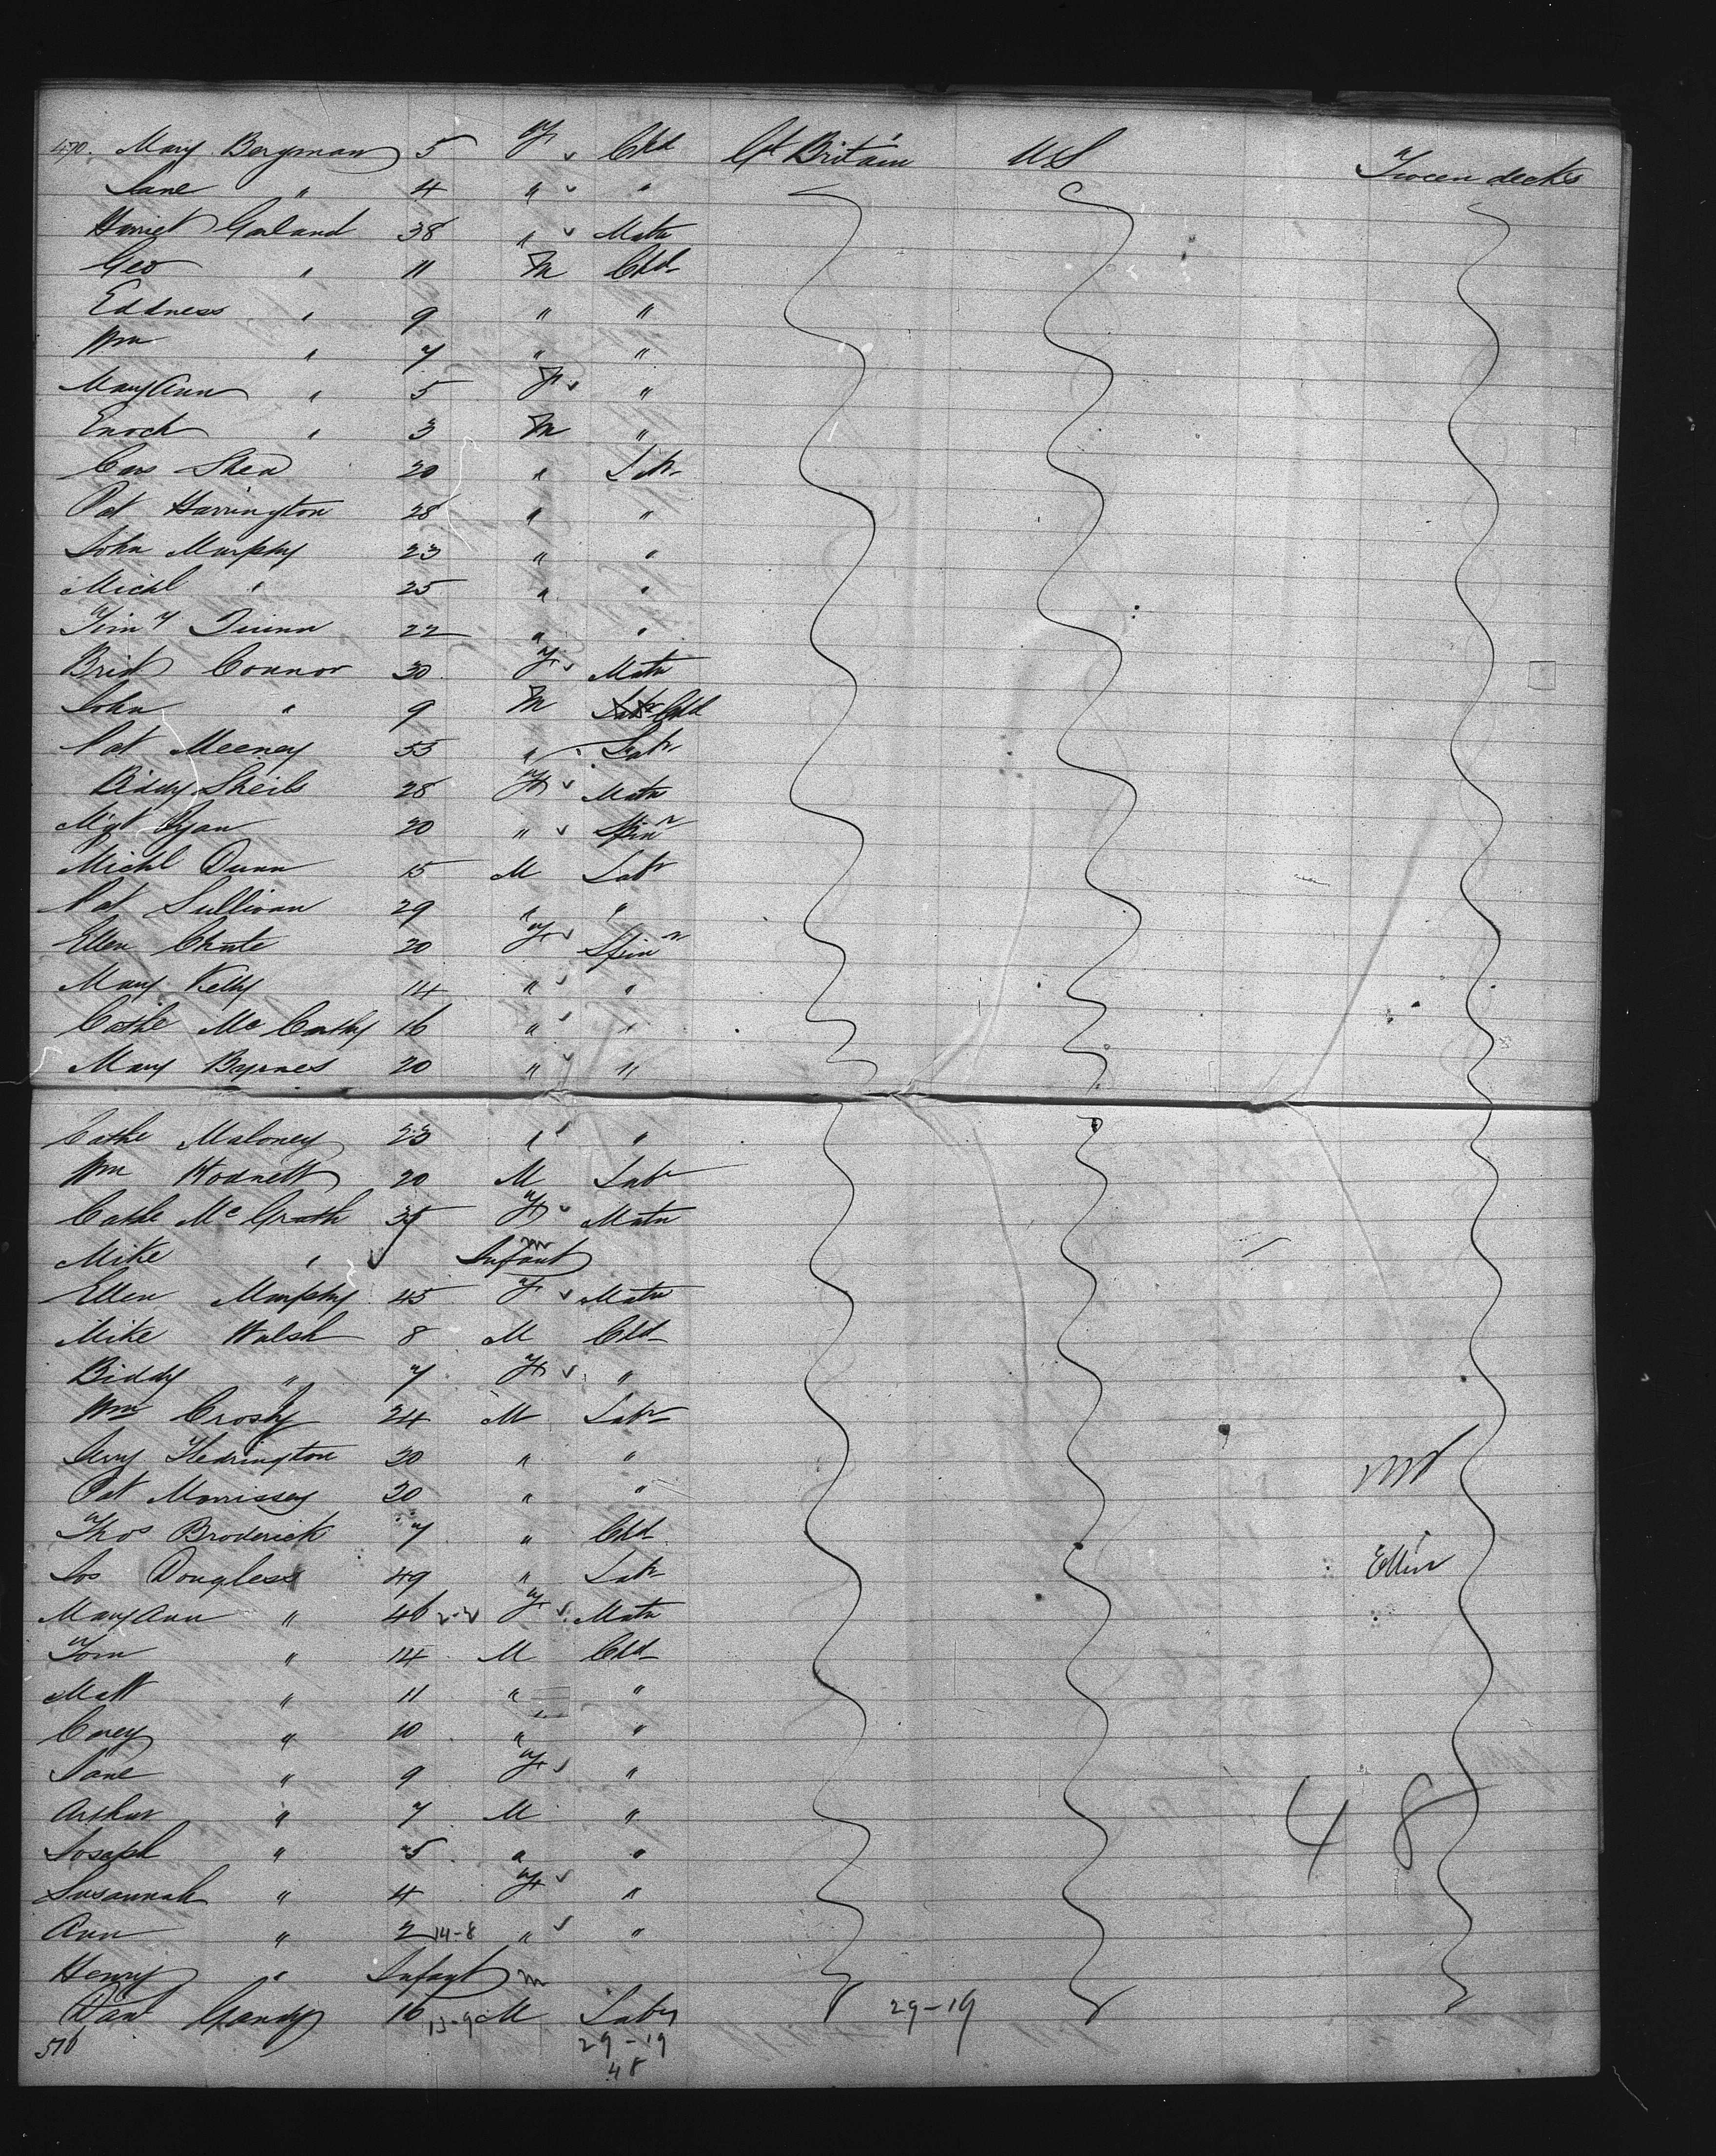 470. Mary Bergman 5 F Chd Gt Britain U S Tween decks
Jane " 4 " "
Harriet Garland 38 " Matn
Geo " 11 M Chd
Eddness " 9 " "
Wm " 7 " "
Mary Ann " 5 F "
Enoch " 3 M "
Cors Shea 20 " Labr
Pat Harrington 28 " "
John Murphy 23 " "
Michl " 25 " "
Timy Quinn 22 " "
Brid Connor 30 F Matn
John " 9 M Labr Chd
Pat Meeney 53 " Labr
Biddy Sheils 28 F Matn
Mgt Ryan 20 " Spinr
Michl Dunn 15 M Labr
Pat Sullivan 29 " "
Ellen Chute 20 F Spinr
Mary Kelly 14 " "
Cathe McCarthy 16 " "
Mary Byrnes 20 " "
Cathe Maloney 23 " "
Wm Hodnett 20 M Labr
Cathe McGrath 35 F Matn
Mike " Infant m
Ellen Murphy 45 F Matn
Mike Walsh 8 M Chd
Biddy " 7 F "
Wm Crosby 24 M Labr
Jerry Hedrington 20 " "
Pat Morrissey 20 " "
Thos Broderick 7 " Chd
Jos Dougless 49 " Labr Ellin
Mary Ann " 46 F Matn
Tom " 14 M Chd
Matt " 11 " "
Corey " 10 " "
Jane " 9 F "
Arthur " 7 M " 48
Joseph " 5 " "
Susannah " 4 F "
Ann " 2 14-8 " "
Henry " Infant m
Danl Gandy 16 13-9 M Labr 29-19
516 29-19
48